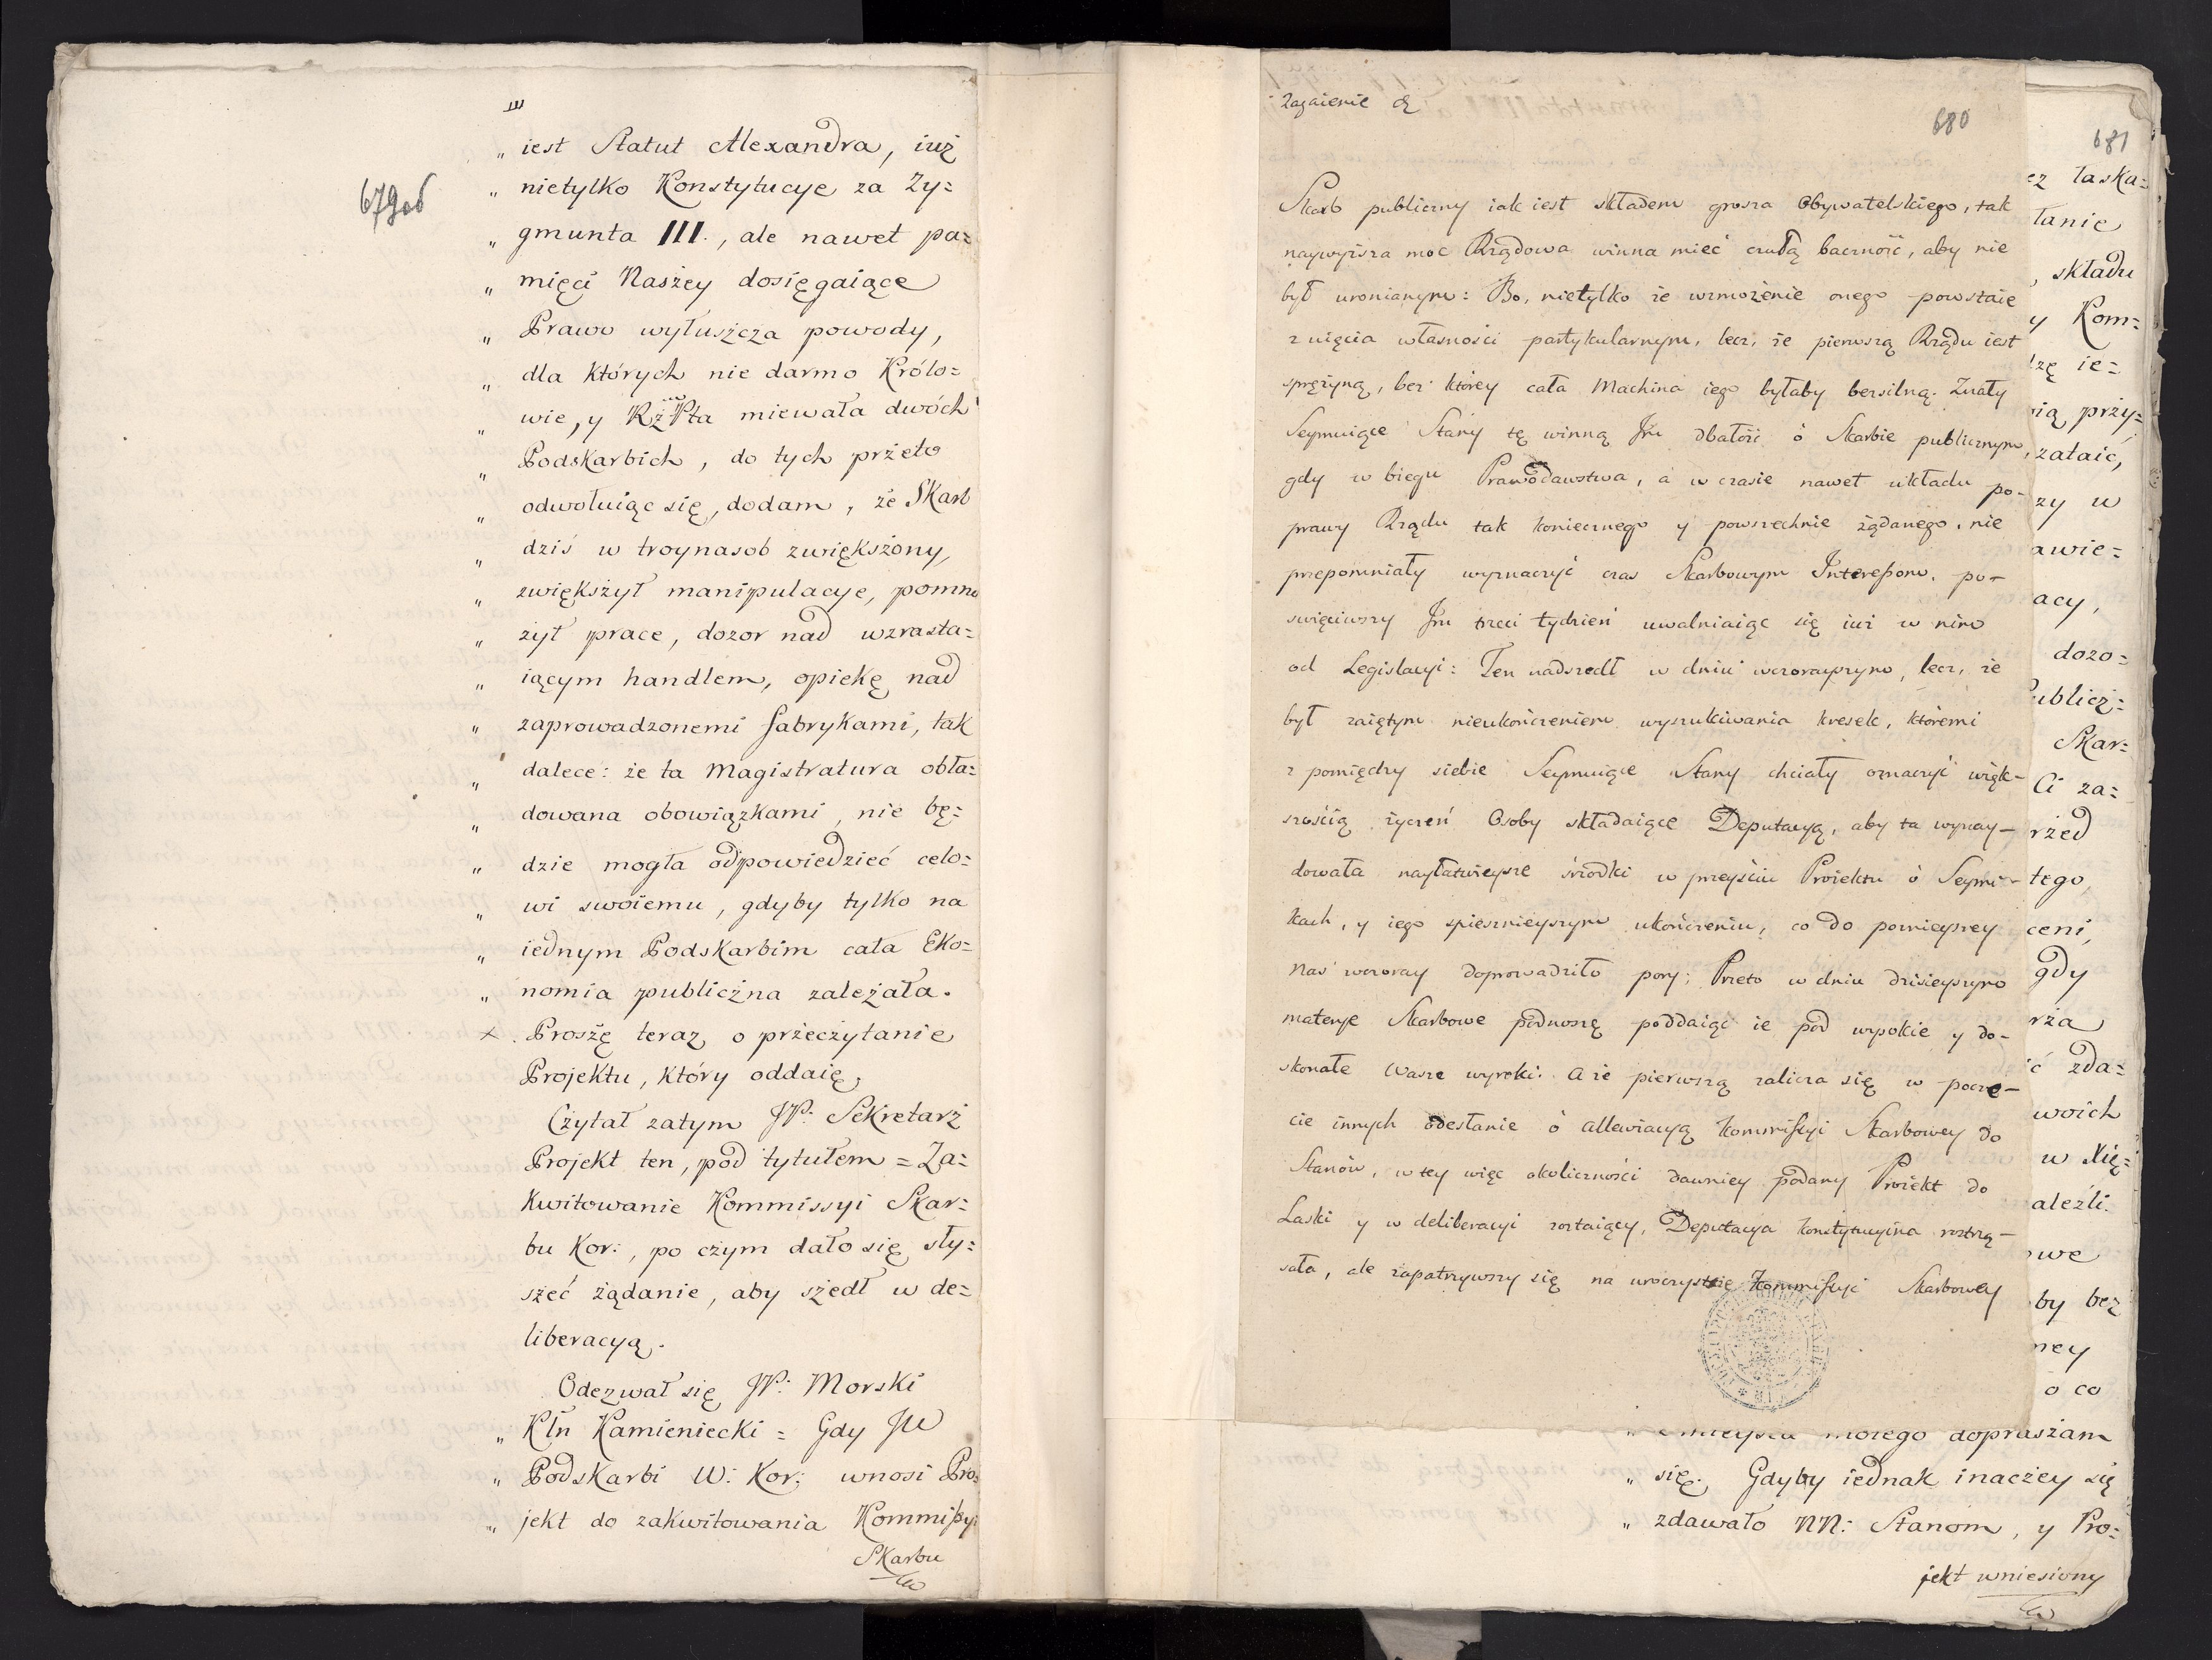 679ob
„ iest Statut Alexandra, iuż
„ nietylko Konstytucye za Zy=
„ gmunta III., ale nawet pa=
„ mięci Naszey dosięgaiące
„ Prawo wyłuszcza powody,
„ dla których nie darmo Królo=
„ wie, y RżPta miewała dwóch
„ Podskarbich, do tych przeto
„ odwołuiąc się, dodam, że Skarb
„ dziś w troynasob zwiększony,
„ zwiększył manipulacye, pomno
„ żył prace, dozor nad wzrasta=
„ iącym handlem, opiekę nad
„ zaprowadzonemi fabrykami, tak
„ dalece: że ta Magistratura obła=
„ dowana obowiązkami, nie bę=
„ dzie mogła odpowiedzieć celo=
„ wi swoiemu, gdyby tylko na
„ iednym Podskarbim cała Eko=
„ nomia publiczna zależała.
x. Proszę teraz o przeczytanie
Projektu, który oddaię,
Czytał zatym JP: Sekretarz
Projekt ten, pod tytułem = Za=
kwitowanie Kommissyi Skar=
bu Kor:, po czym dało się sły=
szeć żądanie, aby szedł w de=
liberacyą.
Odezwał się JP: Morski
„ Kłn Kamieniecki = Gdy JW
„ Podskarbi W: Kor: wnosi Pro=
„ jekt do zakwitowania Kommissyi
Skarbu
Zagaienie
680
Skarb publiczny iak iest składem grosza Obywatelskiego, tak
naywyższa moc Rządowa winna mieć czułą baczność, aby nie
był uronianym: Bo, nietylko że wzmożenie onego powstaie
z uięcia własności partykularnym, lecz, że pierwszą Rządu iest
sprężyną, bez którey cała Machina iego byłaby bezsilną. Znały
Seymuiące Stany tę winną Jm dbałość ó Skarbie publicznym,
gdy w biegu Prawodawstwa, a w czasie nawet układu po-
prawy Rządu tak koniecznego y powszechnie żądanego, nie
przepomniały wyznaczyć czas Skarbowym Interessom, po-
święciwszy Jm trzeci tydzień uwalniaiąc się iuż w nim
od Legislacyi: Ten nadszedł w dniu wczorayszym, lecz, że
był zaiętym nieukończeniem wyszukiwania kresek, któremi
z pomiędzy siebie Seymuiące Stany chciały oznaczyć więk-
szością życzeń Osoby składaiące Deputacyą, aby ta wynay-
dowała nayłatwieysze śrzodki w przeyściu Proiektu ó Seymi-
kach, y iego spiesznieyszym ukończeniu, co do poznieyszey
nas wczoray doprowadziło pory; Przeto w dniu dzisieyszym
materye Skarbowe podnoszę poddaiąc ie pod wysokie y do-
skonałe Wasze wyroki. A że pierwszą zalicza się w pocze-
cie innych odesłanie ó allewiacyą Kommissyi Skarbowey do
Stanów, w tey więc okoliczności dawniey podany Proiekt do
Laski y w deliberacyi zostaiący, Deputacya Konstytucyina roztrzą-
sała, ale zapatrzywszy się na uroczyste Kommissyi Skarbowey
681
ez laska=
łanie
, składu
y Kom=
dzę ie=
ią przy=
zataić,
zy w
awie=
acy,
dozo=
ublicz=
Skar=
Ci za=
rzed
tego
ceni,
gdy
rza
ć zda=
woich
w Xię=
aleźli.
owe
by bez
ney
o co
„ mieysca moiego dopraszam
„ się. Gdyby iednak inaczey się
„ zdawało NN: Stanom, y Pro=
jekt wniesiony